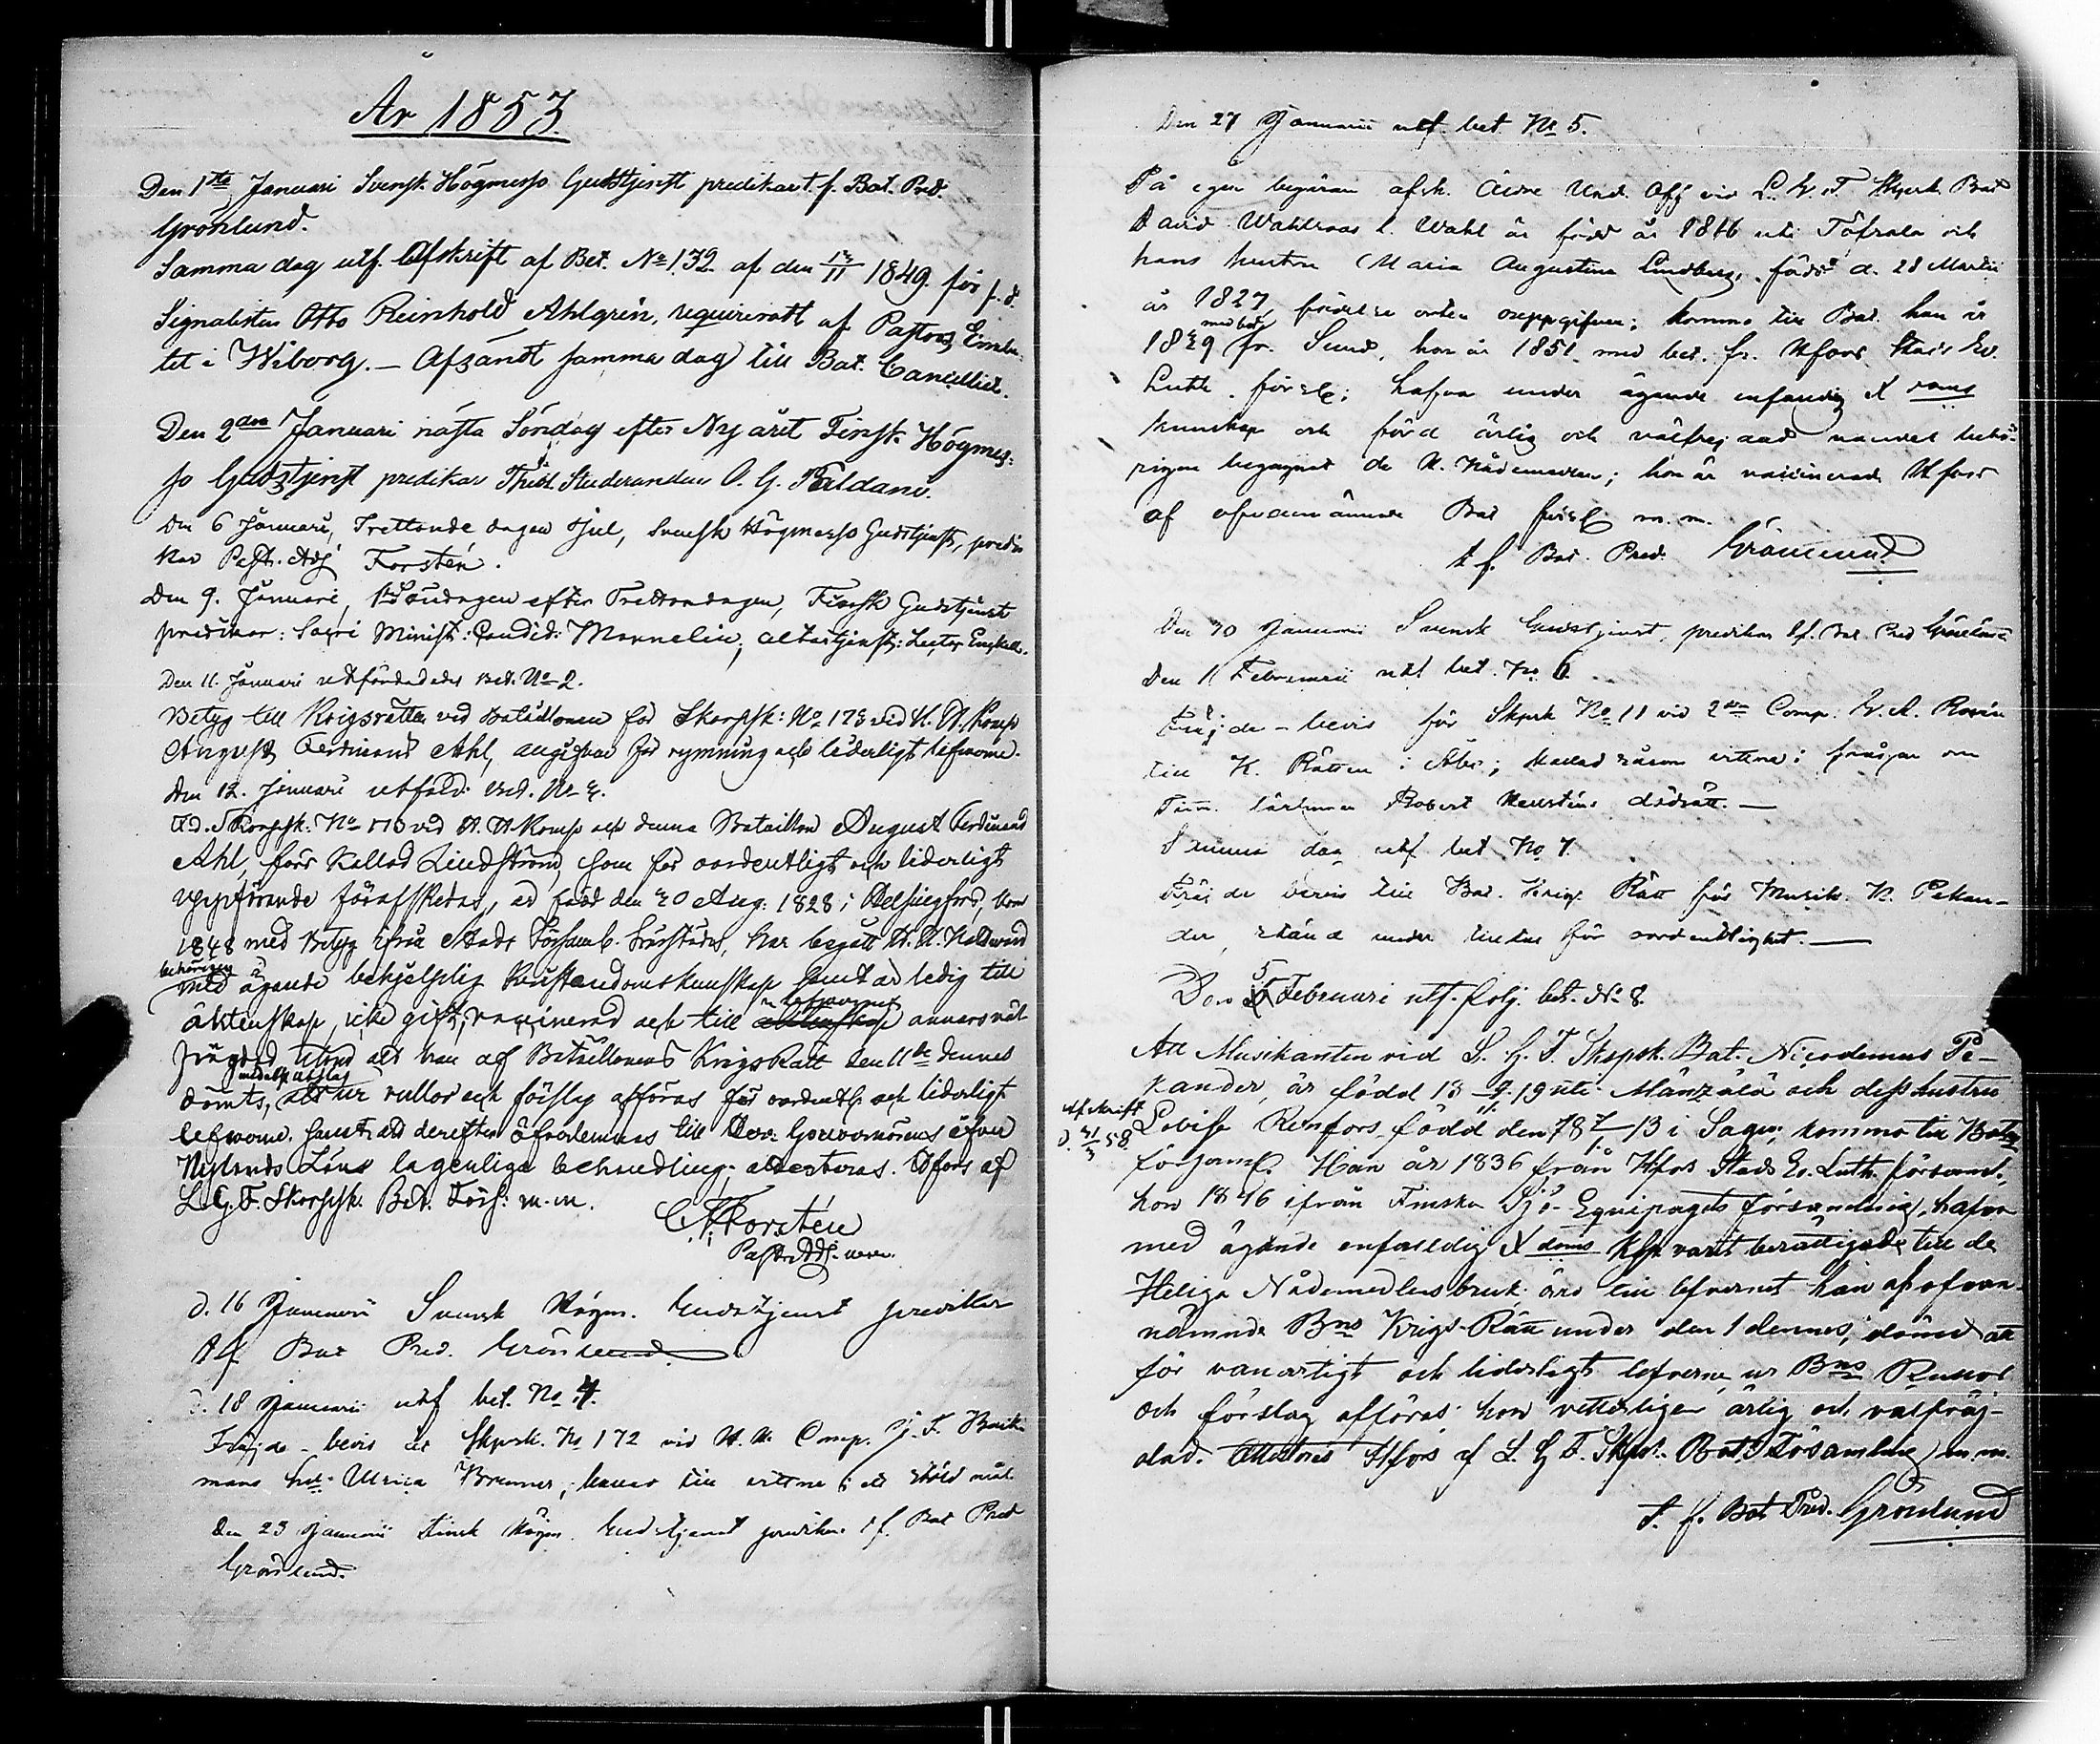 År 1853.
Den 1sta Januari Svensk Högmesso Gudstjenst predikar t. f. Bat. Pred.
Grönlund.
Samma dag utf. Afskrift af Bet. No 132 af den 13/11 1849. för f. d.
Signalisten Otto Reinhold Ahlgrén, requireradt af Pastors Embe-
tet i Wiborg. — Afsändt samma dag till Bat. Cancelliet.
Den 2dra Januari nästa Söndag efter Nyåret Finsk Högmes-
so Gudstjenst predikar Theol. Studeranden O. G.
Den 6 Januari, Trettonde dagen Jul, Svensk Högmesso Gudstjenst, predi-
kar Past. Adj Forstén.
Den 9. Januari, 1 Söndagen efter Trettondagen, Finsk Gudstjenst
predikar: Sacri Minist: Candid: altartjenst: Lector
Den 11. Januari utfärdades Bet. No 2.
Betyg till Krigsrätten vid Bataillonen för Skarpsk: No 173 vid H. K. Komp
August Ferdinand Ahl, angifven för rymning och liderligt lefverne.
Den 12. Januari utfärd. Bet. No 3.
F.d. Skarpsk: No 173 vid Komp och denna Bataillon August Ferdinand
Ahl, förr kallad Lindström, som för oordentligt och liderligt
uppförande förafskedas, är född den 20 Aug. 1828 i Helsingfors, kom
1848 med Betyg ifrån Stads Församl. härstädes, har begått H. H. Nattvard
behörigen
med ägande behjelplig Kristendomskunskap samt är ledig till
äktenskap, icke gift, vaccinerad och till äktenskap annars väl
n lefvernet
frägdad, utom att han af Bataillonens Krigs Rätt den 11te dennes
medelst utslag
dömts, att ur rullor och förslag afföras för oordentl. och liderligt
lefverne samt att derefter öfverlemnas till Gouvernörens öfver
Nylands Län lagenliga behandling; attesteras. Hfors af
L. G. F. Skarpsk. Bat. Förs: m. m.
Forstén
Past. Adj.
d. 16 Januari Svensk Högm. Gudstjenst predikar
t f. Bat Pred. Grönlund.
d. 18 Januari utf bet. No 4.
Fräjde-bevis åt Skpsk. No 172 vid Comp. J. F. Back-
mans hu Ulrica Brenner, till vittne i ett mål.
Den 23 Januari Finsk Högm. Gudstjenst predikar t f. Bat Pred
Grönlund.
Den 27 Januari utf. bet No 5.
På egen begäran afsk. Und. Off vid L. G. F. Skpsk. Bat
David l. Wahl är född år 1816 uti och
hans hustru Maria Augustina Lindberg, född d. 28 Martii
år 1827, födelse orten ouppgifven; komne till Bat. han år
med bet.
1829 fr. Sund, hon år 1851 med bet. fr. Hfors Stads Ev.
Luth. försl.; hafva under ägande enfaldig X doms
kunskap och förd ärlig och välfrejdad vandel behö-
rigen begagnat de H. Nådemedlen; hon är vaccinerad. Hfors
af ofvannämnde Bat försl m. m.
t f. Bat. Pred. Grönlund
Den 30 Januari Svensk Gudstjenst, predikar t f. Bat. Pred Grönlund
Den 1 Februari utf bet. No 6.
Fräjde-bevis för Skpsk No 11 vid 2dra Comp.
till K. Rätten i Åbo; kallad såsom vittne i frågan om
Robert
Samma dag utf bet No 7.
Fräjde bevis till Bat. Krigs Rätt för Musik. N. Pekan-
der, stånd under för oordentlighet. —
Den 5 Februari utf. följ. bet. No 8.
Att Musikanten vid L. G. F. Skpsk. Bat. Nicodemus Pe-
kander, är född 18 9/11 19 uti Mänzälä och dess hustru
Afskrift
d. 31/3 58
Lovisa Renfors född den 18 7/10 13 i Sagu; komma till Bat
församl. Han år 1836 från Hfors Stads Ev. Luth. församl.,
hon 1846 ifrån Finska Sjö-Equipagets församling, hafva
med ägande enfaldig X doms ksp varit berättigade till de
Heliga Nådemedlens bruk, äro till lefvernet han af ofvan-
nämnde Bns Krigs-Rätt under den 1 dennes, dömd att
för vanartigt och liderligt lefverne ur Bns Rullor
och förslag afföras; hon veterligen ärlig och välfräj-
dad. Attesteras Hfors af L. G. F. Skpsk. Bat. Församling m. m.
t. f. Bat Pred. Grönlund